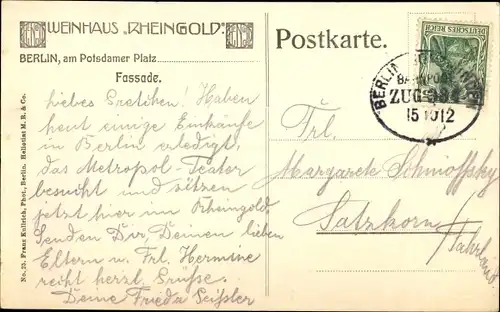 WEINHAUS „RHEINGOLD“.
BERLIN, am Potsdamer Platz
Fassade.
Postkarte.
DEUTSCHES REICH
BERLIN
BAHNPOST
ZUG
15 10 12
Liebes Gretchen! Haben
heut einige Einkäufe
in Berlin erledigt,
das Metropol-Teater
besucht und sitzen
jetzt hier im Rheingold.
Senden Dir Deinen lieben
Eltern u. Frl. Hermine
recht herzl. Grüße.
Deine Frieda Seißler
Frl.
Margarete
Satzkorn
No. 25. Franz Kullrich, Phot., Berlin. Heliotint M. R. & Co.